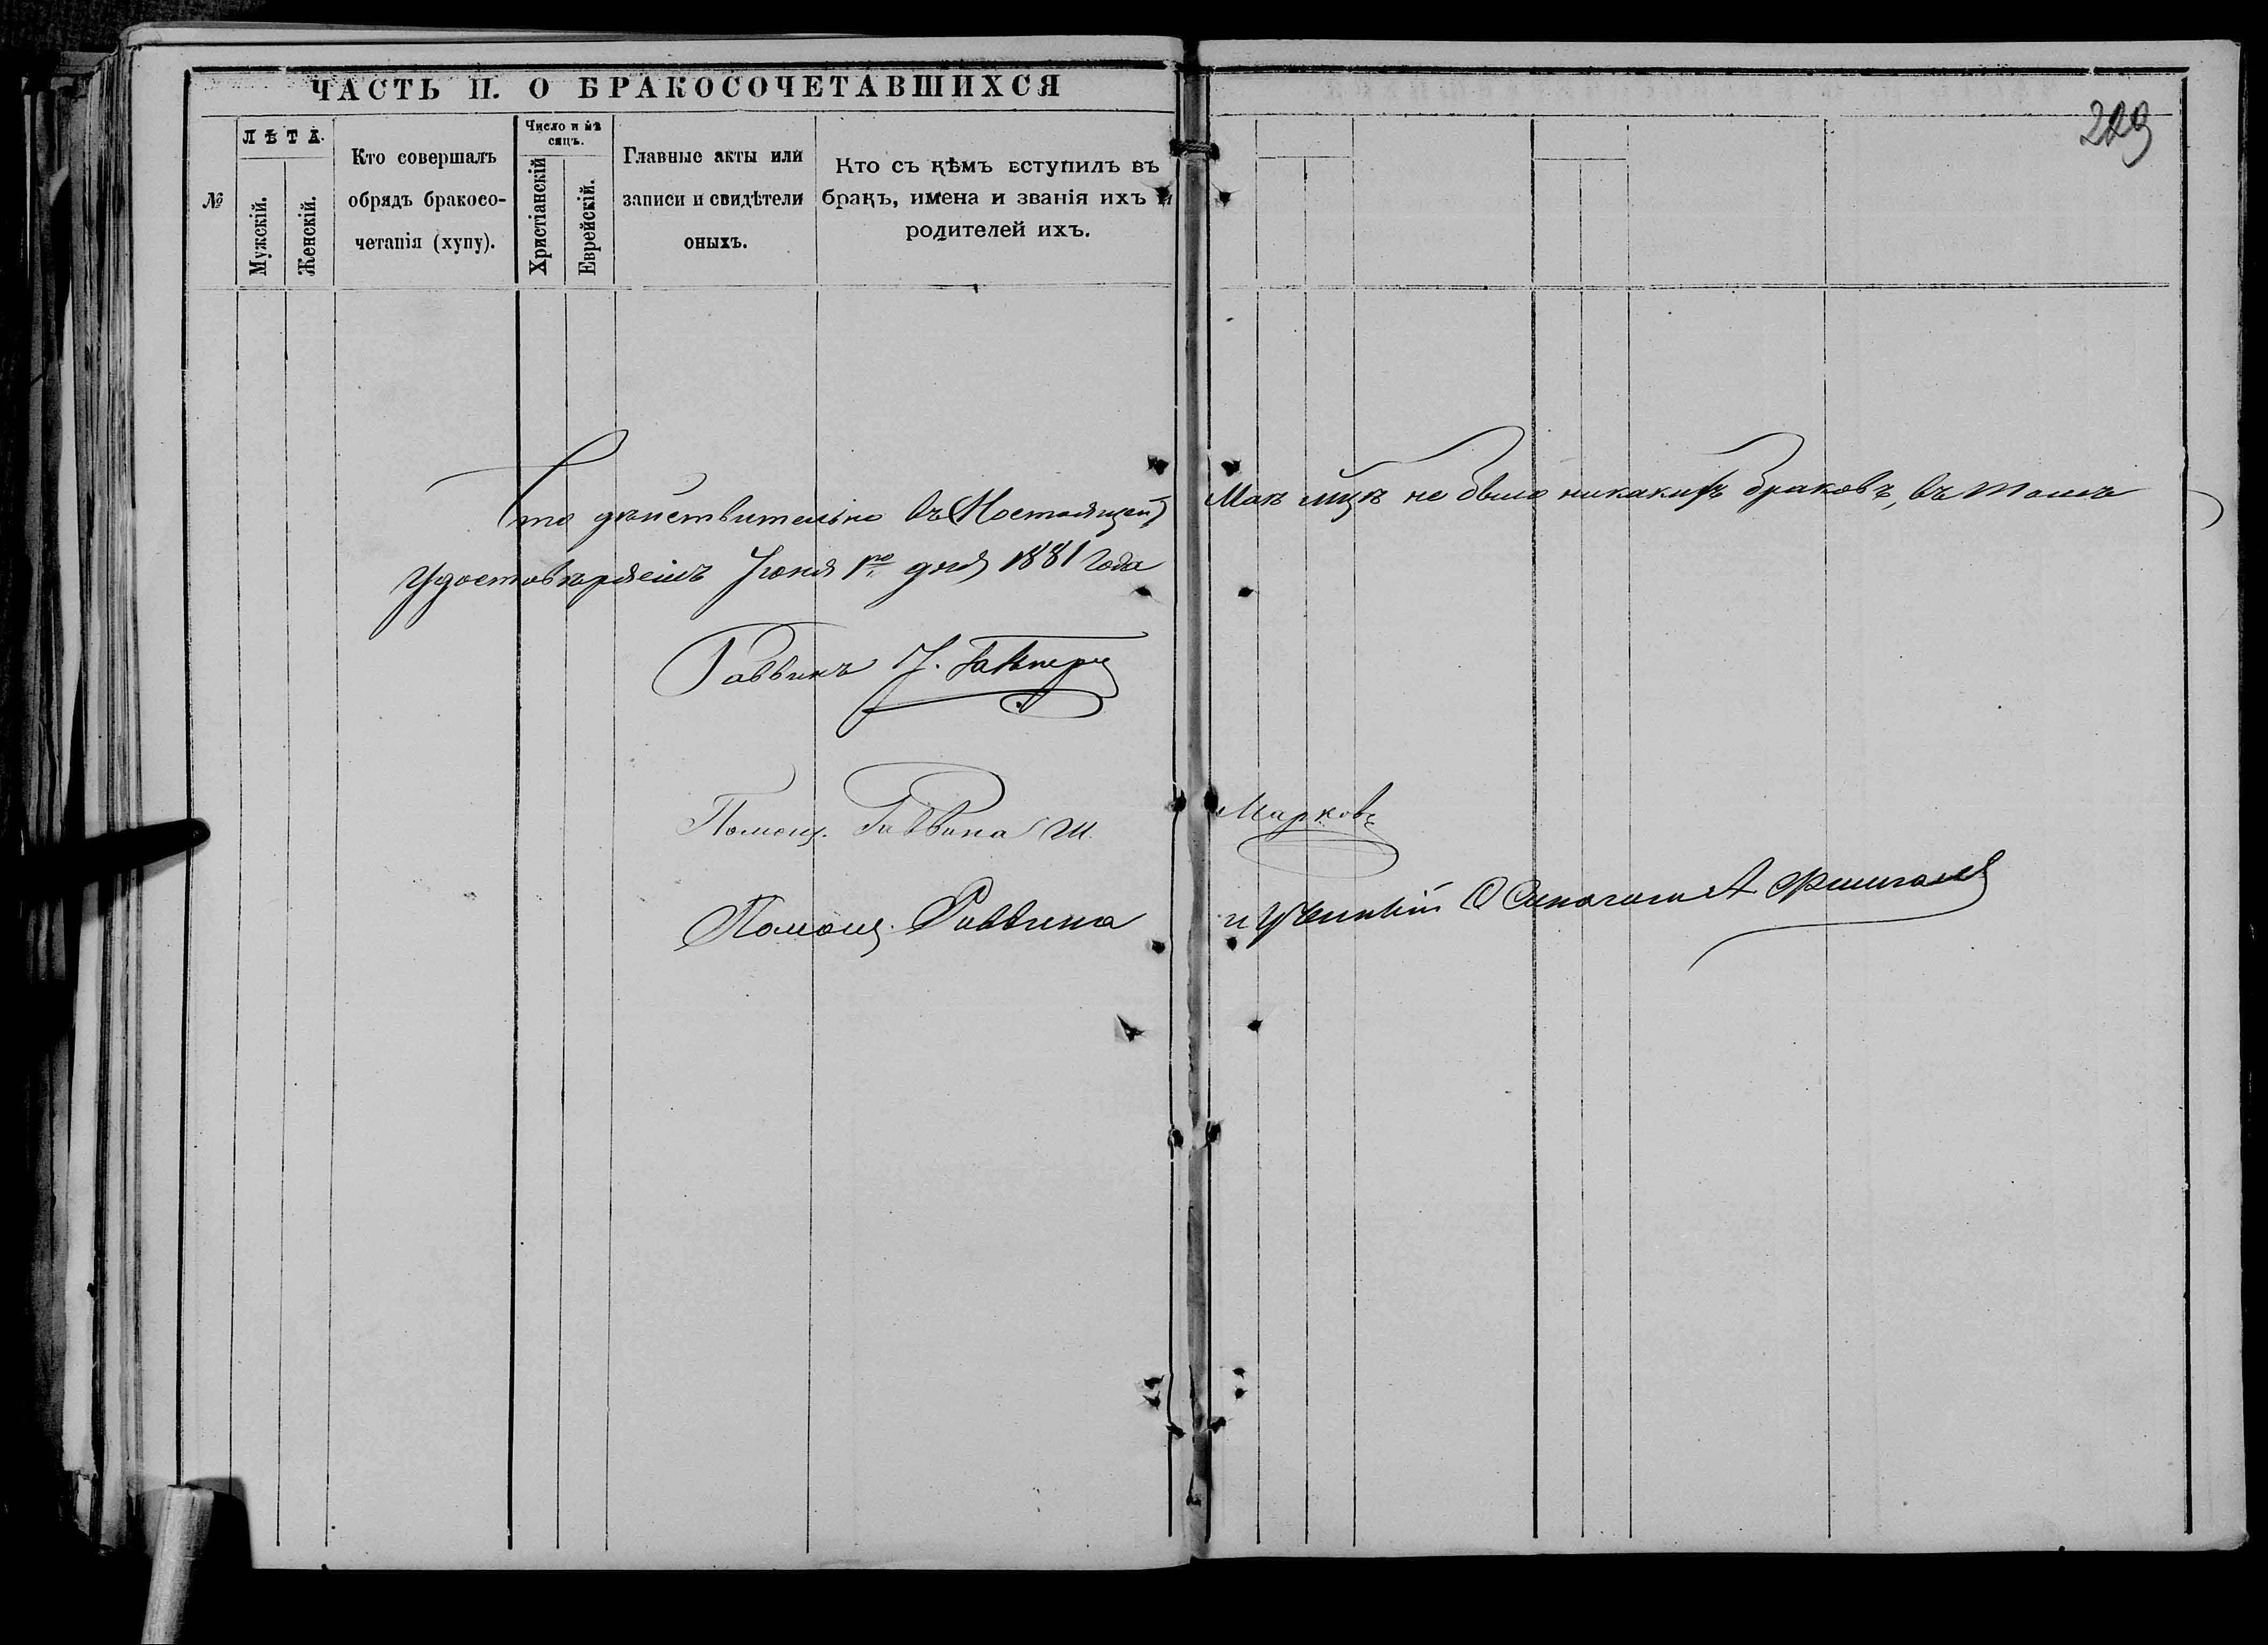 ЧАСТЬ II. О БРАКОСОЧЕТАВШИХСЯ
229
№
ЛѢТА.
Мужскій.
Женскій.
Кто совершалъ
обрядъ бракосо-
четанія (хупу).
Число и мѣ
сяцъ.
Христіанскій
Еврейскій.
Главные акты или
записи и свидѣтели
оныхъ.
Кто съ кѣмъ вступилъ въ
бракъ, имена и званія ихъ и
родителей ихъ.
Что дѣйствительно въ Настоящей Маѣ м-цѣ не было никакихъ браковъ, въ томъ
Удостовѣряемъ Іюня 1го дня 1881 года
Раввинъ
Помощ. Раввина Ш. Марковъ
Помощ. Раввина и Ученый